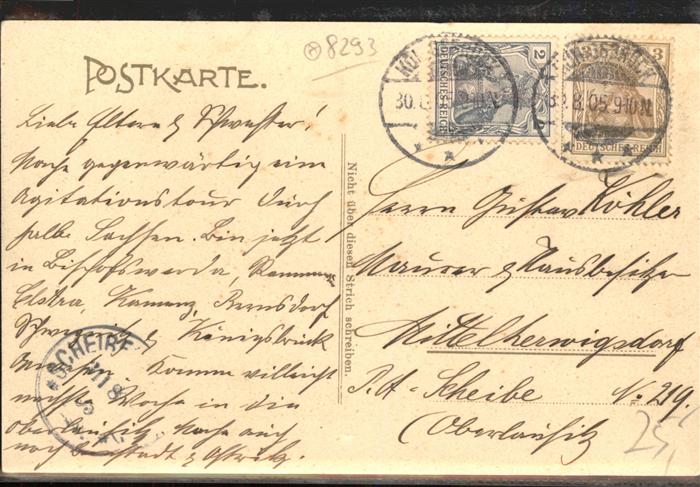 8293
POSTKARTE.
Liebe Eltern & Schwester!
Mache gegenwärtig eine
Agitationstour durch
halbe Sachsen. Bin jetzt
in Bischofswerda,
Elstra, Kamenz, Bernsdorf
& Königsbrück
Komme vielleicht
nächste Woche in die
Oberlausitz, mache auch
noch & Ostritz.
Nicht über diesen Strich schreiben.
2
DEUTSCHES REICH
3
DEUTSCHES REICH
KÖNIGSBRÜCK
30.8.05 9-10 N.
Herrn Gustav Köhler
Maurer & Hausbesitzer
Mittelherwigsdorf
P. A. Scheibe No. 219.
(Oberlausitz)
SCHEIBE
25,-